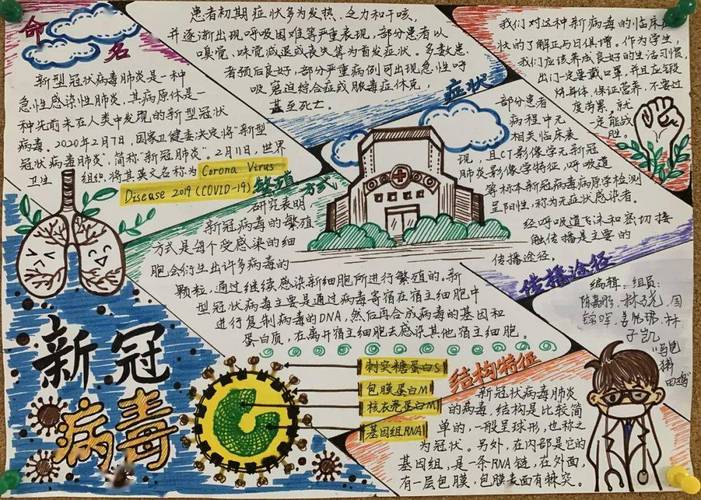 命名
新型冠状病毒肺炎是一种
急性感染性肺炎,其病原体是一
种先前未在人类中发现的新型冠状
病毒。2020年2月7日,国家卫健委决定将“新型
冠状病毒肺炎”,简称“新冠肺炎”。2月11日,世界
卫生组织将其英文名称为Corona Virus
Disease 2019 (COVID-19)
患者初期症状多为发热、乏力和干咳,
并逐渐出现呼吸困难等严重表现,部分患者以
嗅觉、味觉减退或丧失等为首发症状。多数患
者预后良好,部分严重病例可出现急性呼
吸窘迫综合症或脓毒症休克,
甚至死亡。
症状
部分患者
病程中无
相关临床表
现,且CT影像学无新冠
肺炎影像学特征,呼吸道
等标本新冠病毒病原学检测
呈阳性,称为无症状患者。
我们对这种新病毒的临床症
状的了解正与日俱增。作为学生,
我们应该养成良好的生活习惯,
出门一定要戴口罩,并且应锻
炼身体,保证营养,不要过
度劳累,就
一定能战
胜。
繁殖方式
研究表明
新冠病毒的繁殖
方式是每个受感染的细
胞会衍生出许多病毒的
颗粒,通过继续感染新细胞所进行繁殖的。新
型冠状病毒主要是通过病毒寄宿在宿主细胞中
进行复制病毒的DNA,然后再合成病毒的基因和
蛋白质,在离开宿主细胞去感染其他宿主细胞。
经呼吸道飞沫和密切接
触传播是主要的
传播途径。
传播途径
编辑:组员:
子凯
新冠
病毒
刺突糖蛋白S
包膜蛋白M
核衣壳蛋白M
基因组RNA
结构特征
新冠状病毒肺炎
的病毒,结构是比较简
单的,一般呈球形,也称之
为冠状。另外,在内部是它的
基因组,是一条RNA链,在外面,
有一层包膜,包膜表面有棘突。